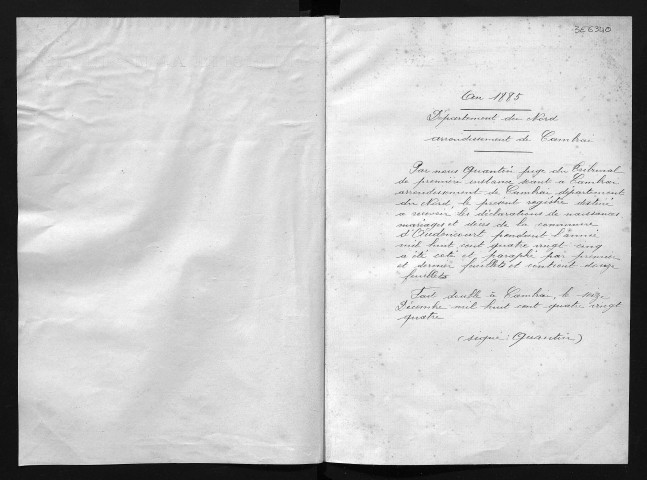 3E6340
An 1885
Département du Nord
arrondissement de Cambrai
Par nous Quantin juge du Tribunal
de première instance séant à Cambrai
arrondissement de Cambrai département
du Nord, le présent registre destiné
à recevoir les déclarations de naissances
mariages et décès de la commune
pendant l'année
mil huit cent quatre vingt cinq
a été coté et paraphé par premier
et dernier feuillets et contient
feuillets
Fait double à Cambrai, le onze
Décembre mil huit cent quatre vingt
quatre
(signé: Quantin)